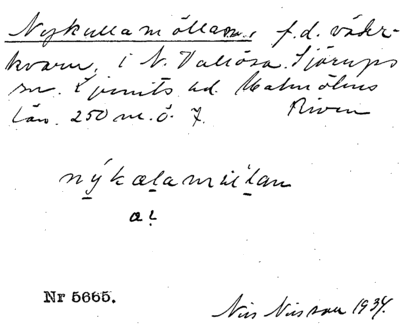 Nykullamöllan, f.d. väder-
kvarn, i N. Vallösa. Sjörups
sn. Ljunits hd. Malmöhus
län. 250 m. ö. 7. Riven
nýkalamöllan
Nr 5665.
Nils Nilsson 1934.